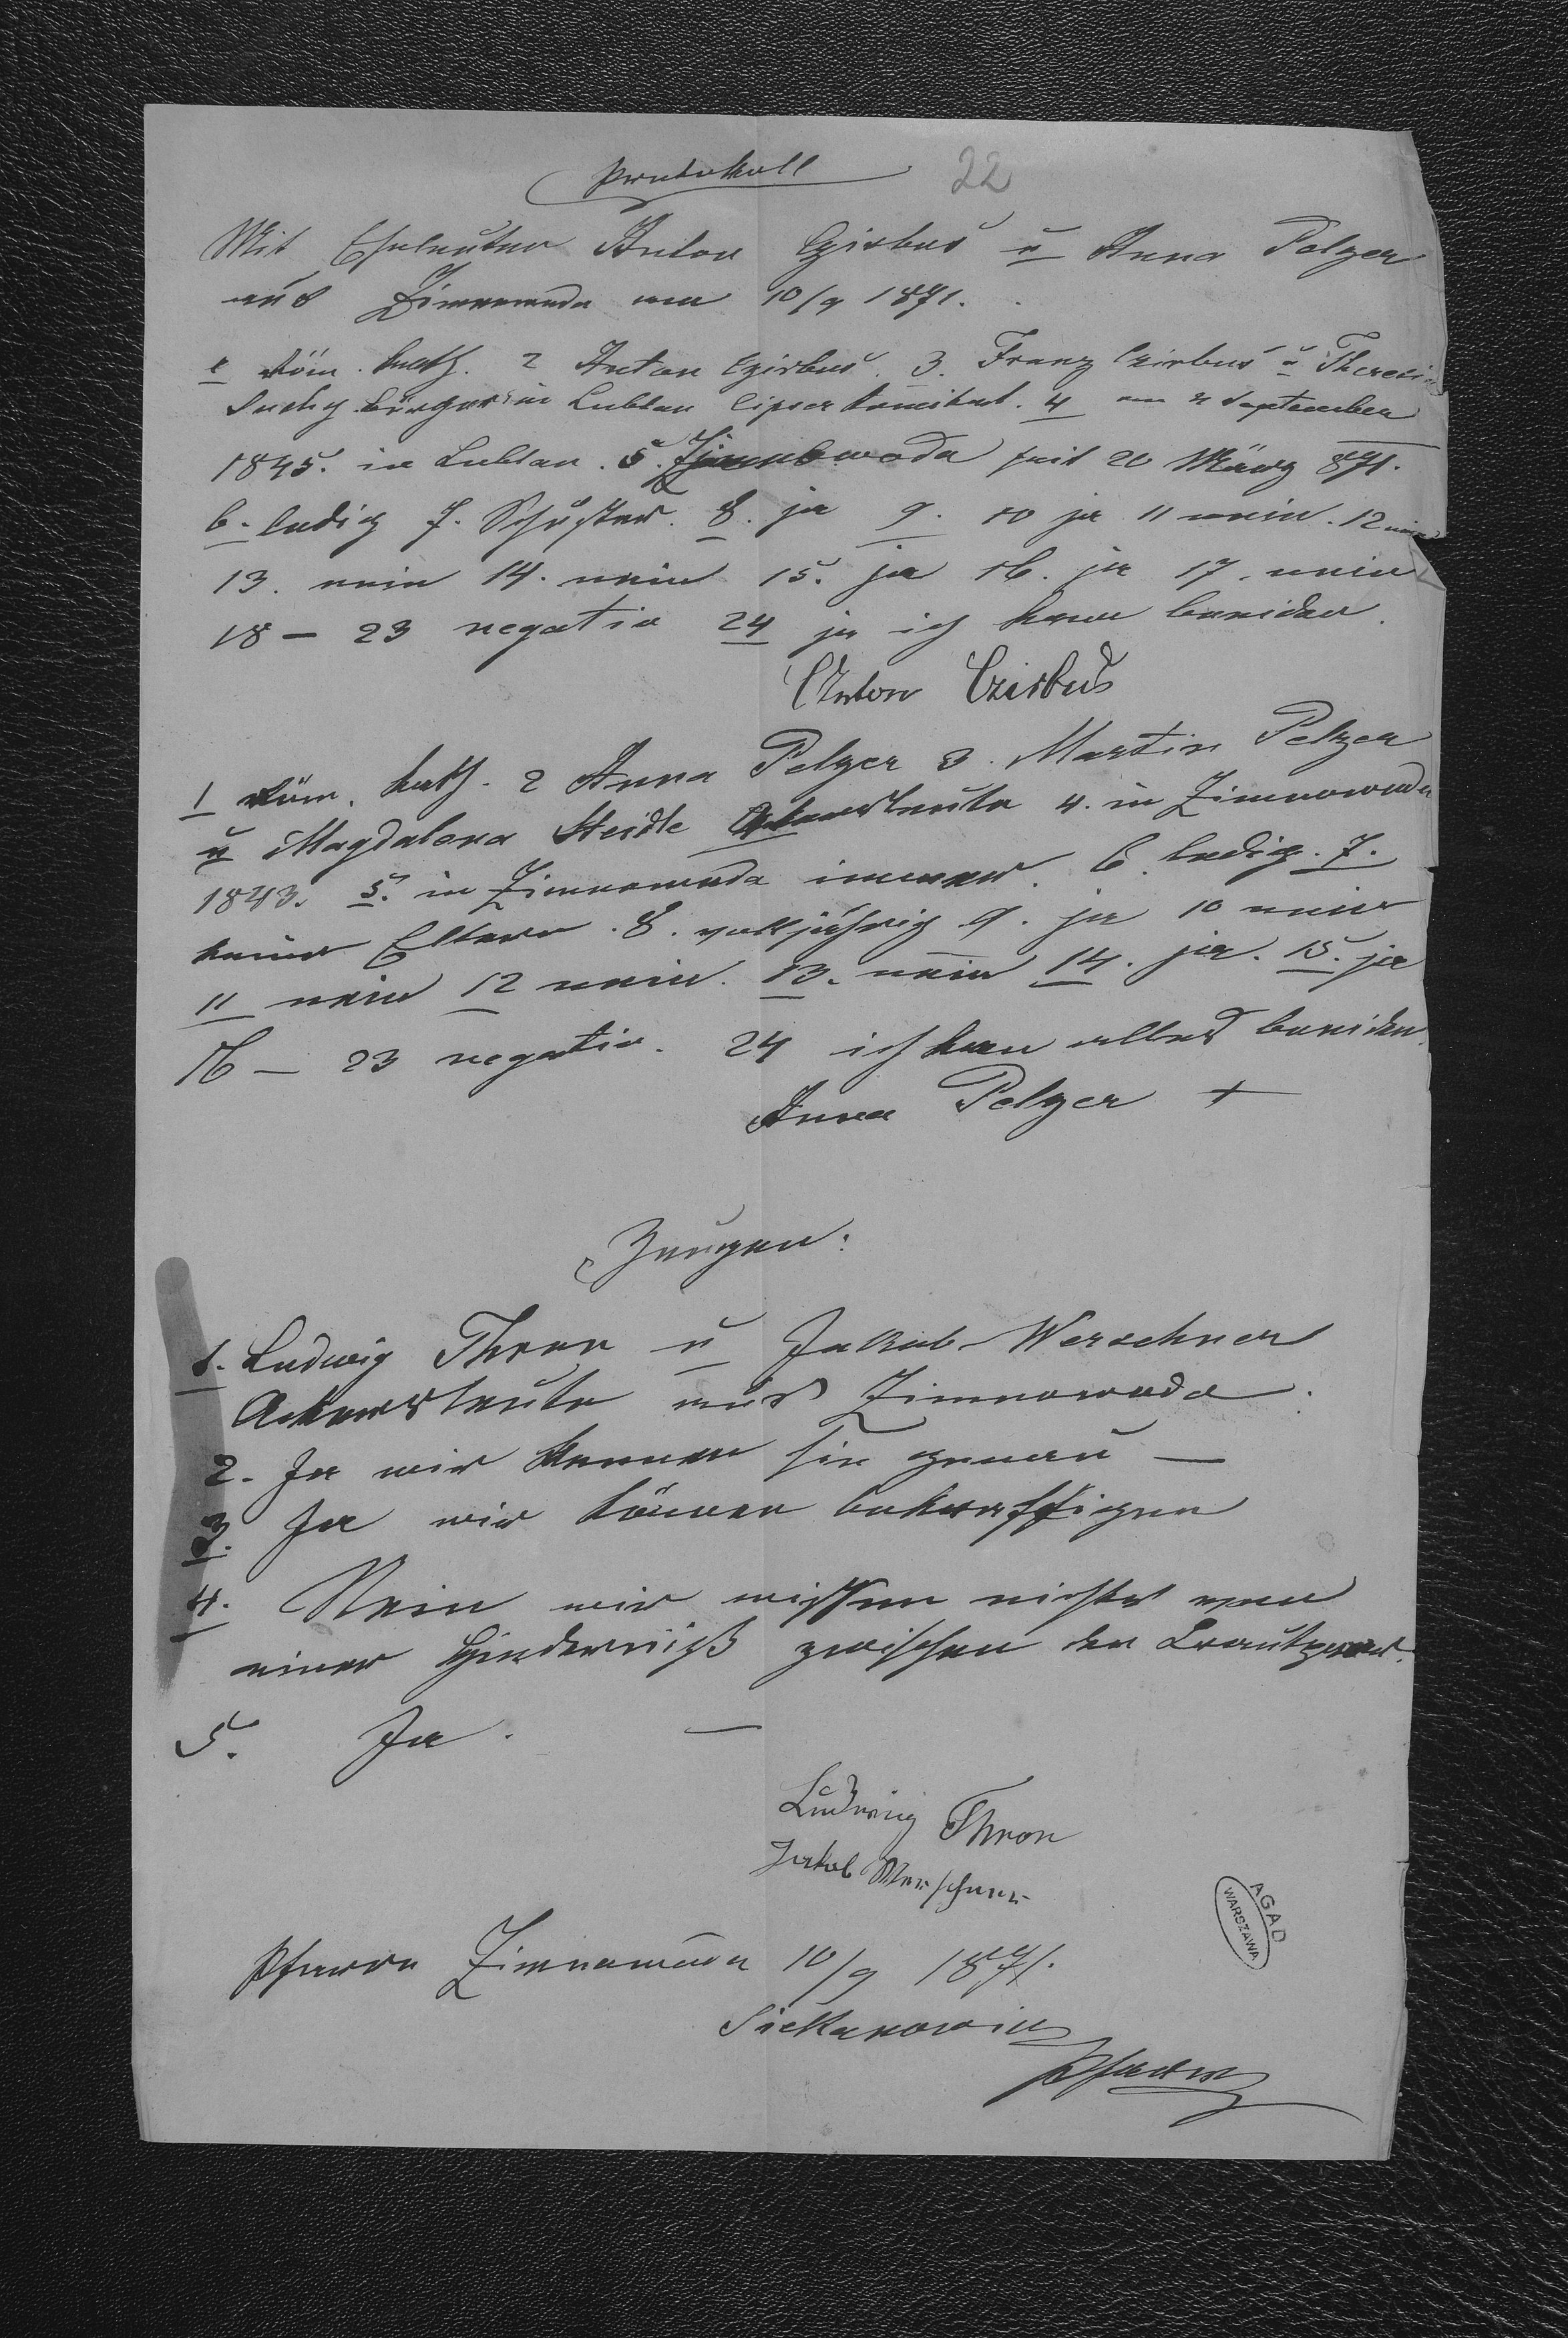 Protokoll 22
Mit Eheleuten Anton Czisbus u Anna Pelzer
aus Zimnawoda am 10/9 1871.
1 röm. kath. 2 Anton Czirbus. 3. Franz Czirbus u Theresia
Suchy Bürger in Lublau Lipser Komitat. 4 am 2 September
1845. in Lublau. 5. Zimnowoda seit 20 März 871.
6. ledig 7. Schuster. 8. ja 9. 10 ja 11 nein. 12 nein
13. nein 14. nein 15. ja 16. ja 17. nein
18 – 23 negativ 24 ja ich kann beeiden.
Anton Czisbus
1 röm. kath. 2 Anna Pelzer 3. Martin Pelzer
u Magdalena Steidle Ackersleute 4. in Zimnowoda
1843. 5. in Zimnowoda immer. 6. ledig. 7.
keine Eltern. 8. volljährig 9. ja 10 nein
11 nein 12 nein. 13. nein 14. ja. 15. ja
16 – 23 negativ. 24 ich kann alles beeiden.
Anna Pelzer +
Zeugen:
1. Ludwig Thron u Jakob Werschner
Ackersleute aus Zimnowoda.
2. Ja wir kennen sie genau —
3. Ja wir können bekräftigen
4. Nein wir wissen nichts von
einer Hinderniß zwischen den Brautpaar.
5. Ja. —
Ludwig Thron
Jakob Werschner
Pfarre Zimnawoda 10/9 1871.
Pfarrer
AGAD
WARSZAWA